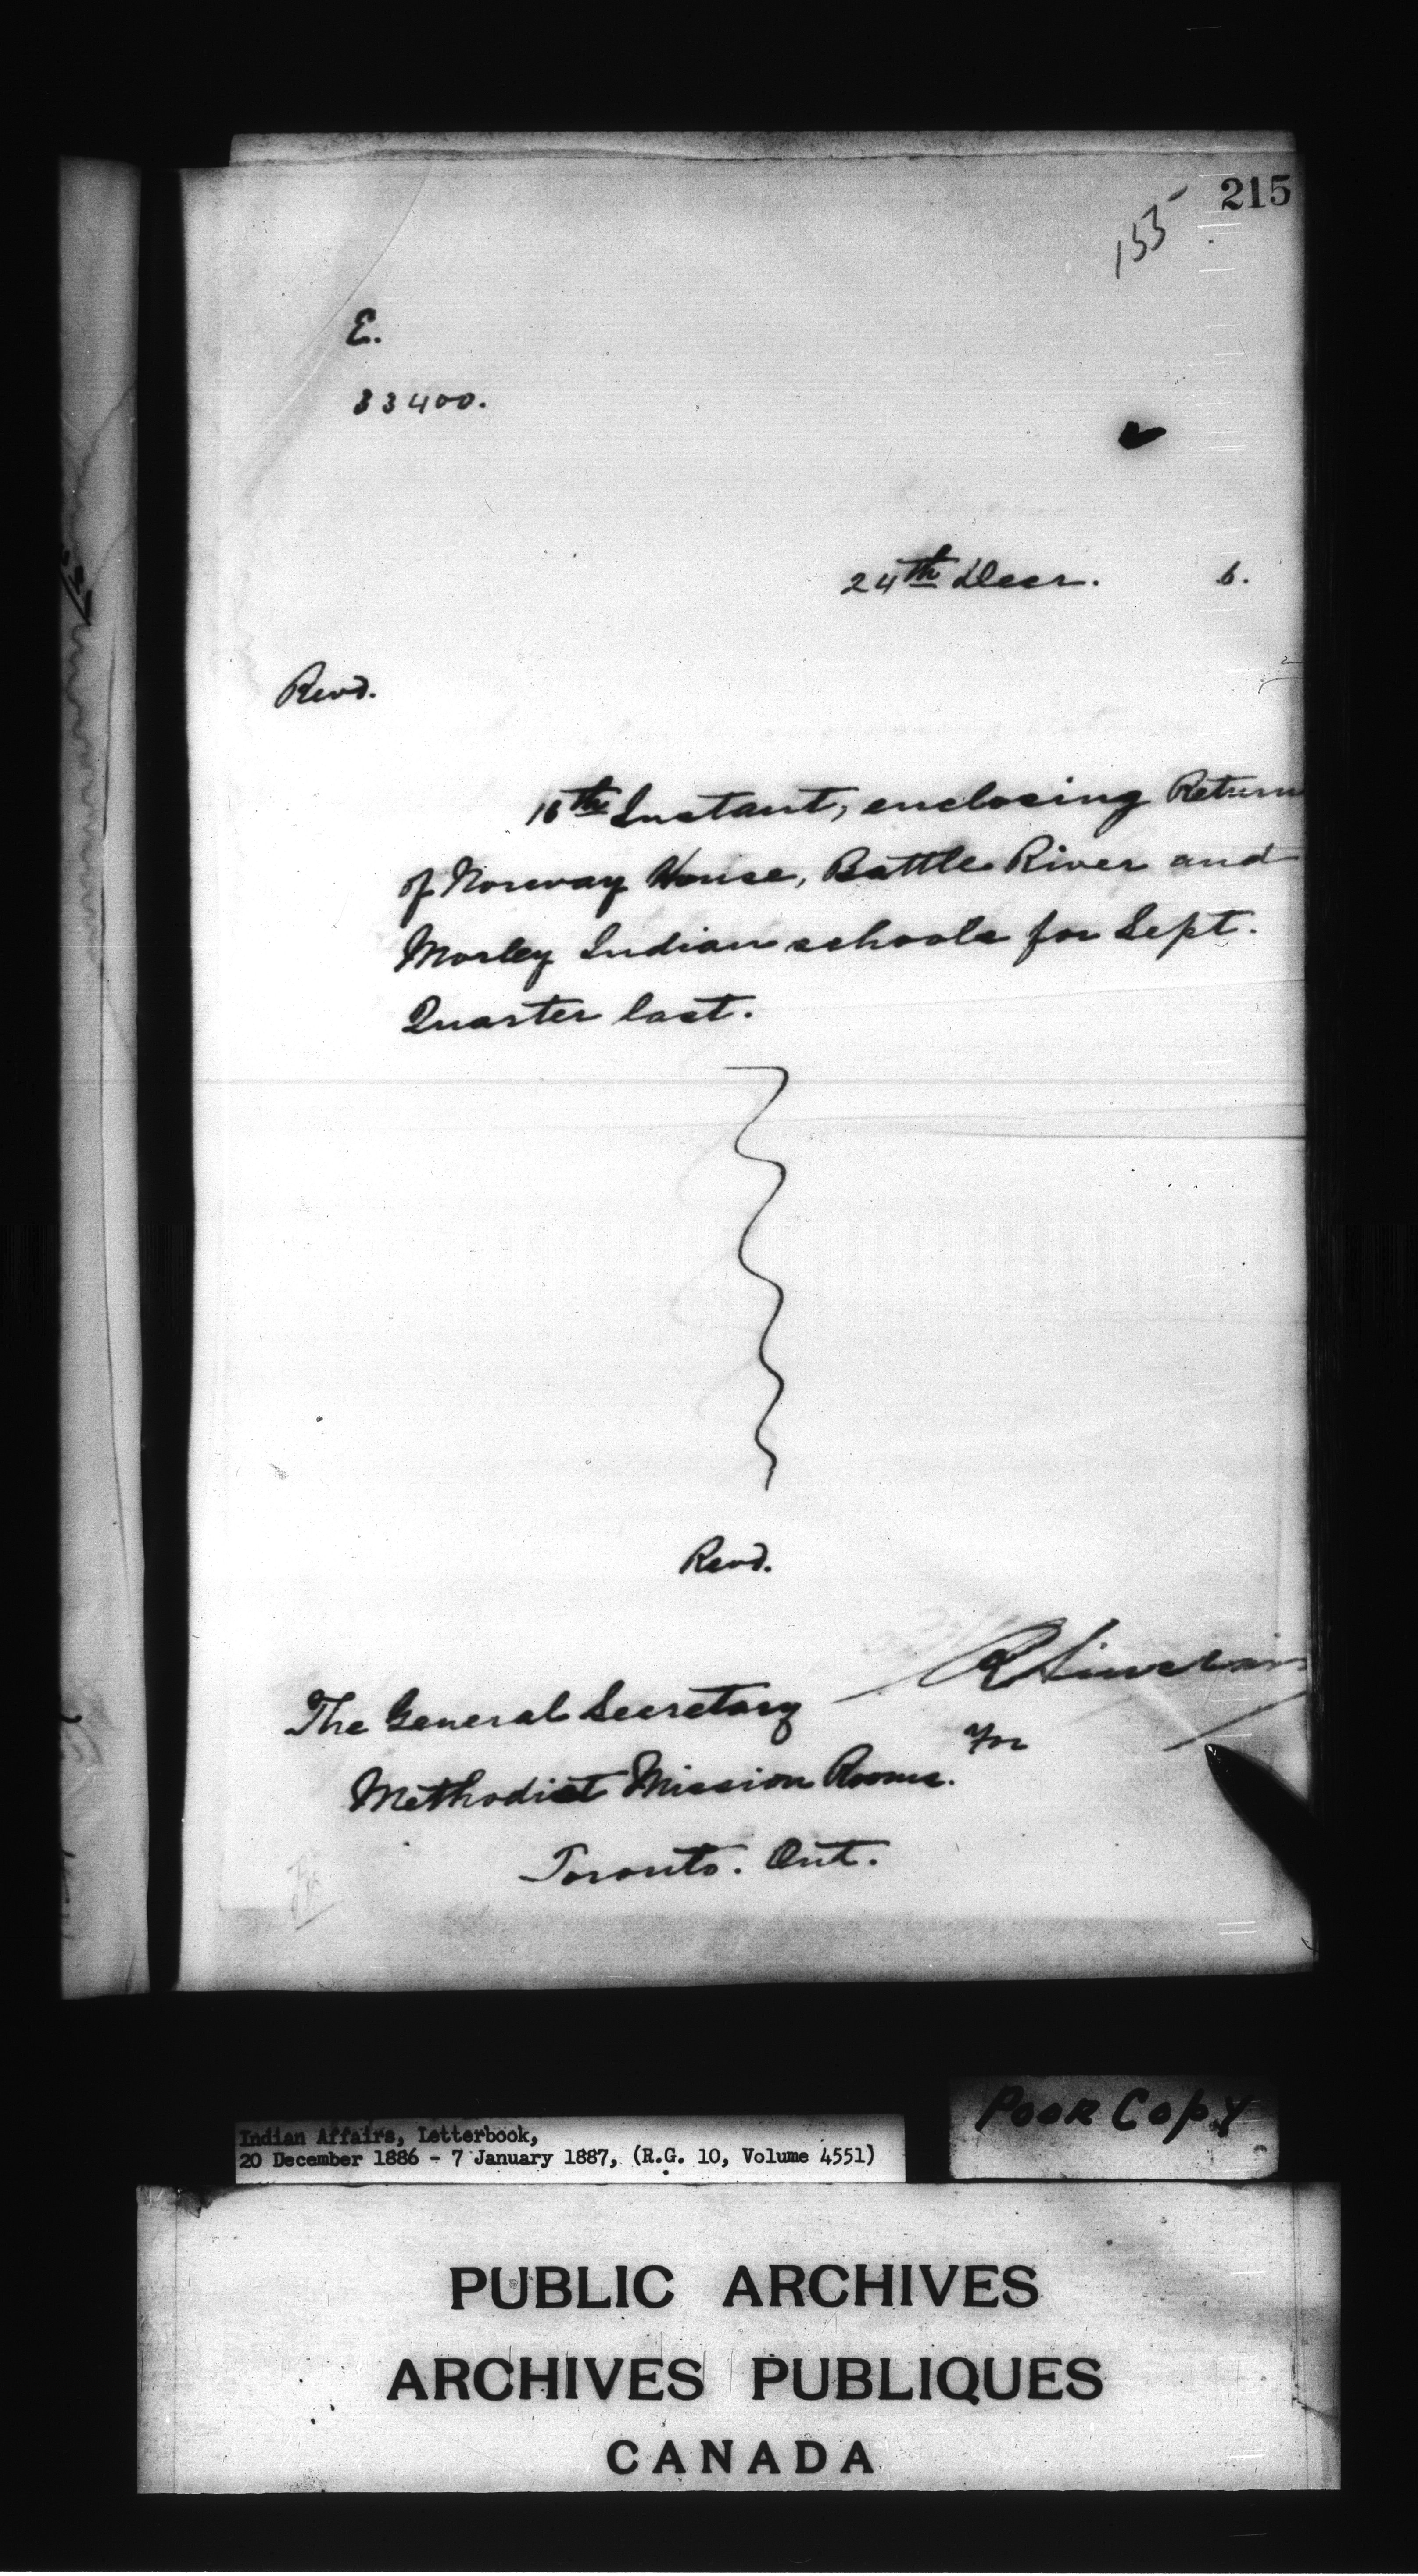 215
155
E.
33400.
24th Decr. 6.
Revd.
16th Instant, enclosing Return
of Norway House, Battle River and
Morley Indian schools for Sept.
Quarter last.
Revd.
R Sinclair
The General Secretary
For
Methodist Mission Rooms.
Toronto. Ont.
Poor Copy
Indian Affairs, Letterbook,
20 December 1886 - 7 January 1887, (R.G. 10, Volume 4551)
PUBLIC ARCHIVES
ARCHIVES PUBLIQUES
CANADA